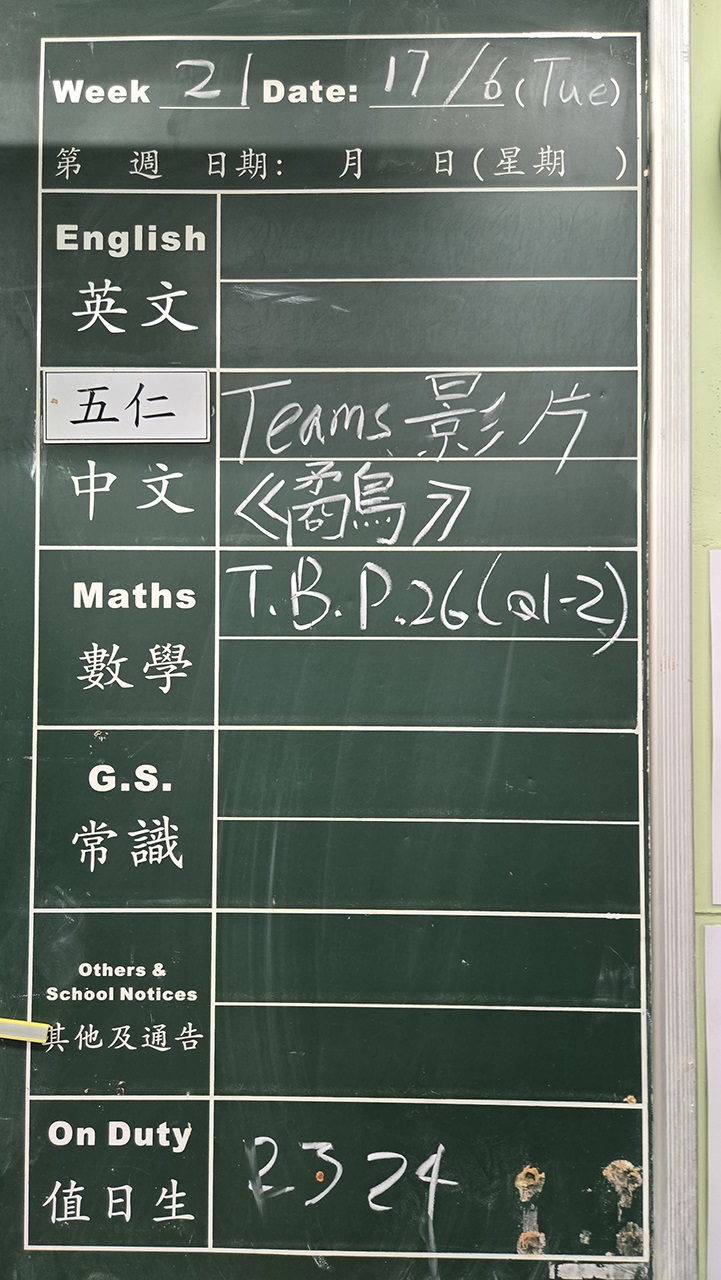 Week 21 Date: 17/6 (Tue)
第 週 日期: 月 日(星期 )
English
英文
五仁
Teams 影片
中文
《鷸鳥》
Maths
T.B.P.26(Q1-2)
數學
G.S.
常識
Others &
School Notices
其他及通告
On Duty
值日生
23 24